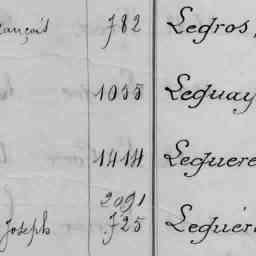 rançois 782 Legros,
1055 Leguay
1414 Leguere
2091
Joseph 725 Leguér